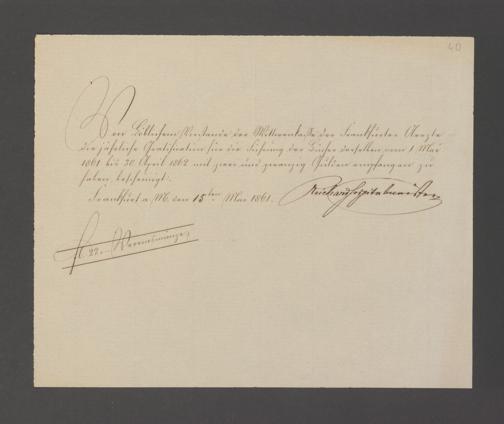 40
Von Löblichem Vorstande der Wittwenkasse der Frankfurter Aerzte
die jährliche Gratification für die Führung der Bücher derselben vom 1. Mai
1861 bis 30. April 1862 mit zwei und zwanzig Gulden empfangen zu
haben, bescheinigt.
Frankfurt a/M. den 15ten Mai 1861.
fl. 22. Vereinsmünze